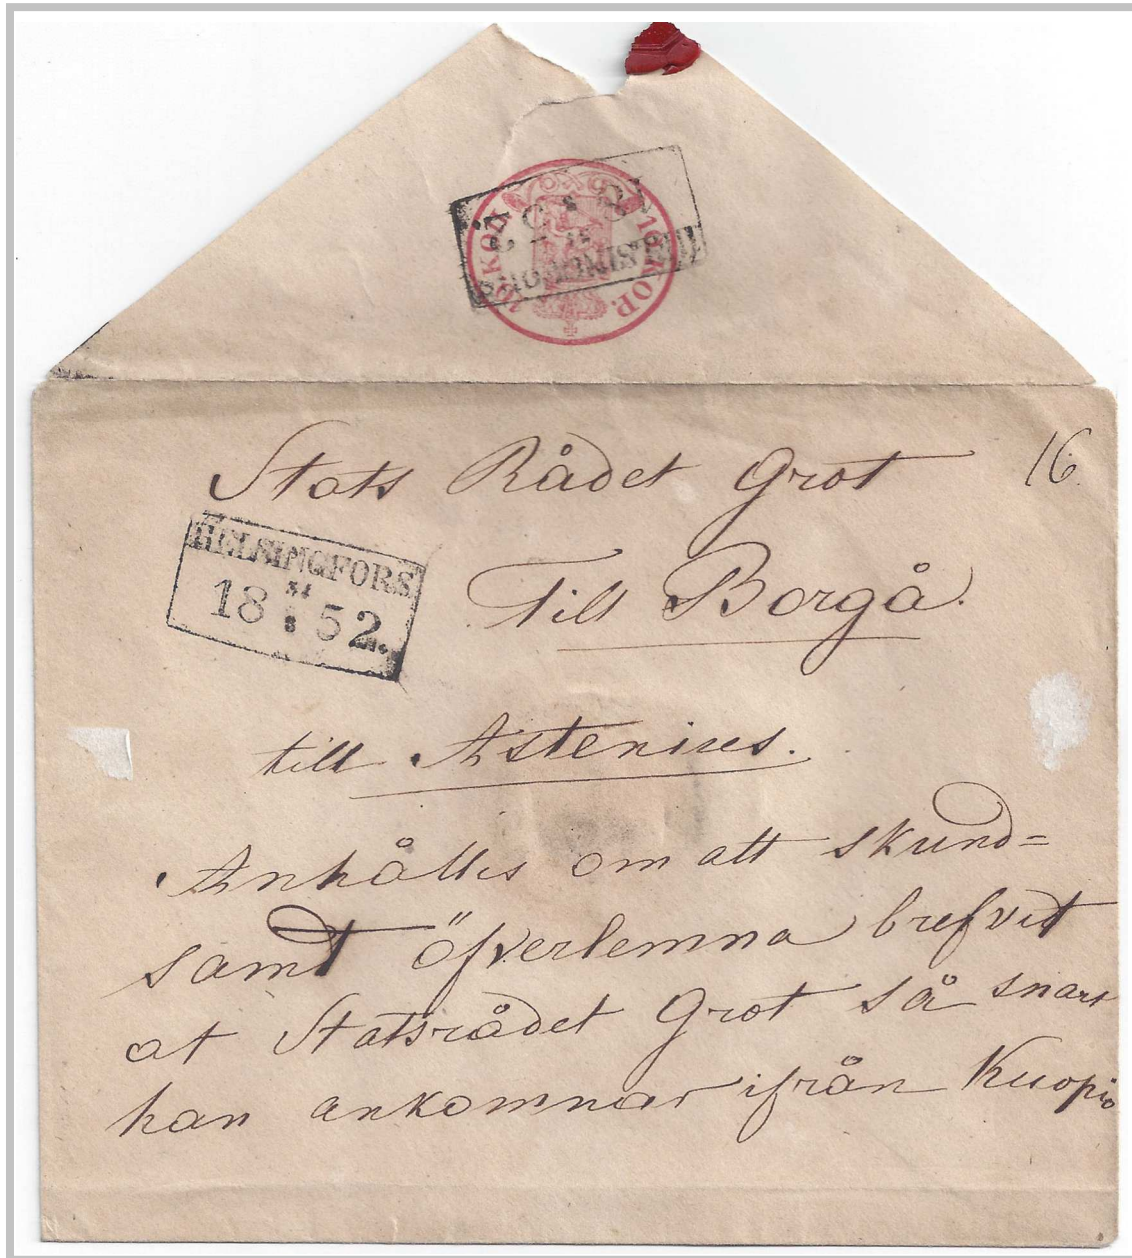 10 KOP. 10 KOP.
HELSINGFORS
1852.
Stats Rådet Grot
16
HELSINGFORS.
18 31/8 52.
Till Borgå.
till Astenius.
Anhålles om att skund=
samt öfverlemna brefvet
at Statsrådet Grot så snart
han ankommar ifrån Kuopio